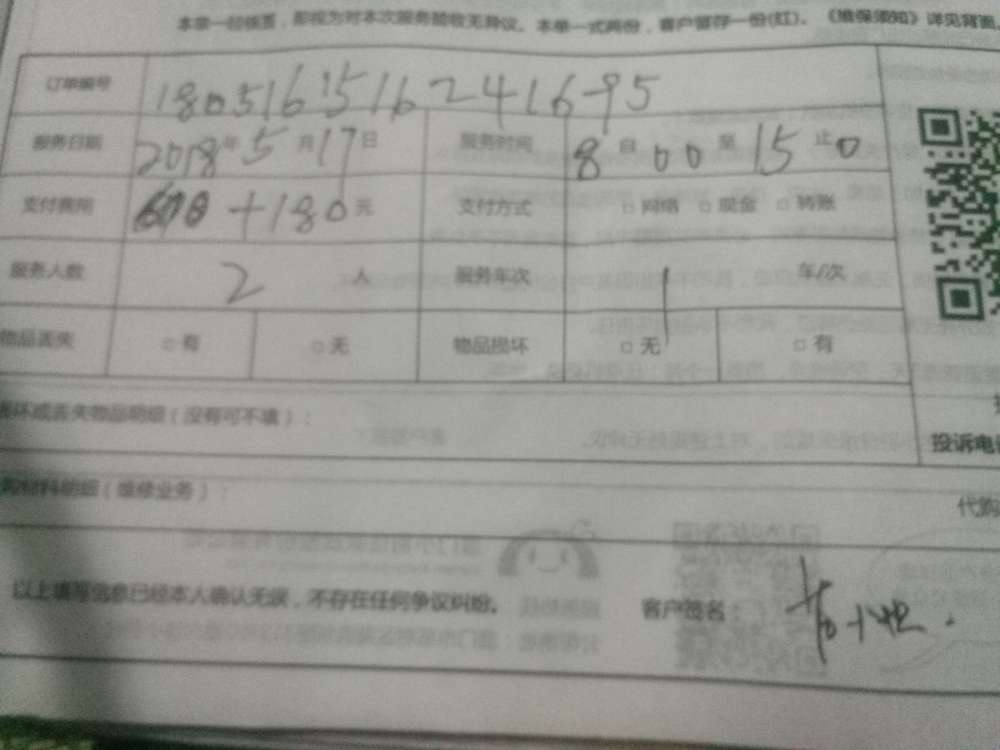 本单一经核查，即视为对本次服务验收无异议。本单一式两份，客户留存一份(红)。《维保须知》详见背面
订单编号 18051615162241695
服务日期 2018年5月17日 服务时间 8自00至15止0
支付费用 +180元 支付方式 □网络 □现金 □转账
服务人数 2人 服务车次 1车/次
物品丢失 □有 □无 物品损坏 □无 □有
坏或丢失物品明细（没有可不填）：
投诉电
材料明细（维修业务）：
代购
以上填写信息已经本人确认无误，不存在任何争议纠纷。 客户签名：